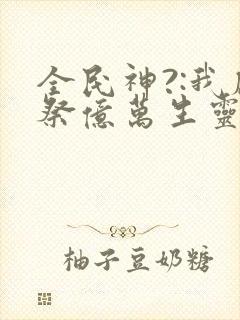 全民神?:我
祭億萬生靈
柚子豆奶糖